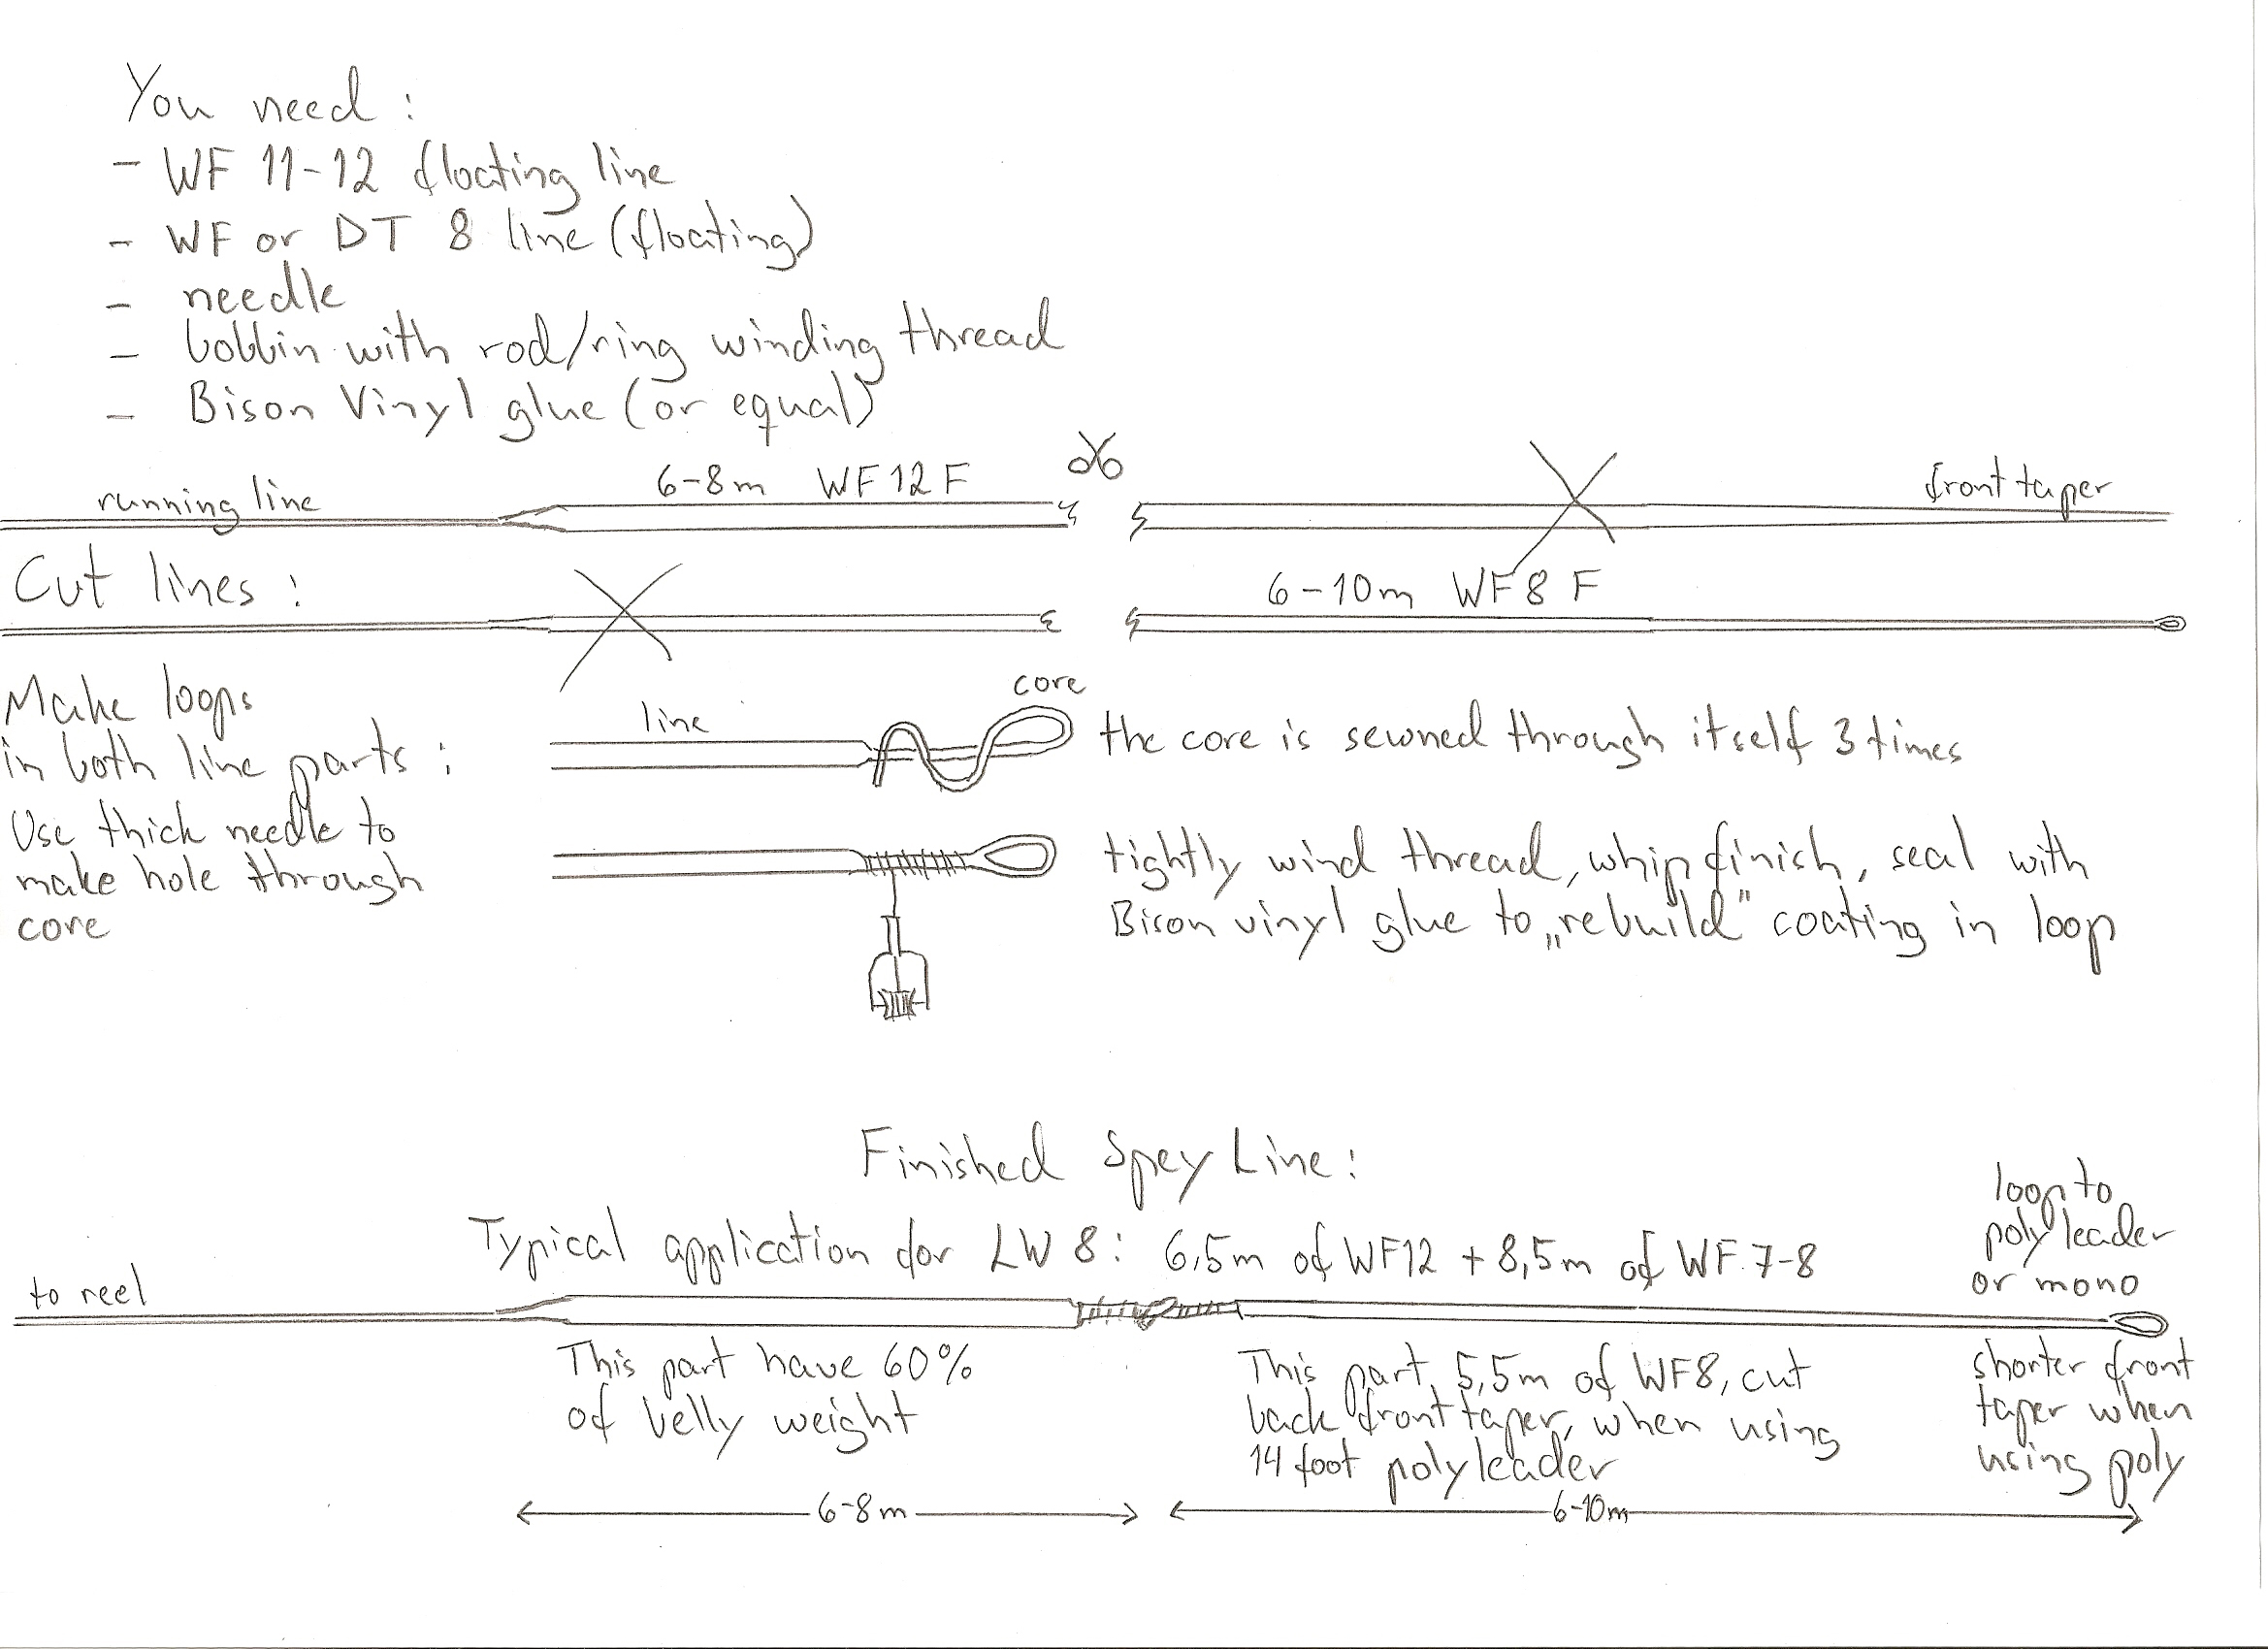 You need :
- WF 11-12 floating line
- WF or DT 8 line (floating)
- needle
- bobbin with rod/ring winding thread
- Bison Vinyl glue (or equal)
running line
6-8m WF 12 F
front taper
Cut lines :
6-10m WF 8 F
Make loops
in both line parts :
Use thick needle to
make hole through
core
line
core
the core is sewned through itself 3 times
tightly wind thread, whip finish, seal with
Bison vinyl glue to „rebuild" coating in loop
Finished Spey Line :
Typical application for LW 8 : 6,5m of WF12 + 8,5m of WF 7-8
loop to
poly leader
or mono
to reel
This part have 60%
of belly weight
This part, 5,5m of WF8, cut
back front taper, when using
14 foot polyleader
shorter front
taper when
using poly
6-8m
6-10m